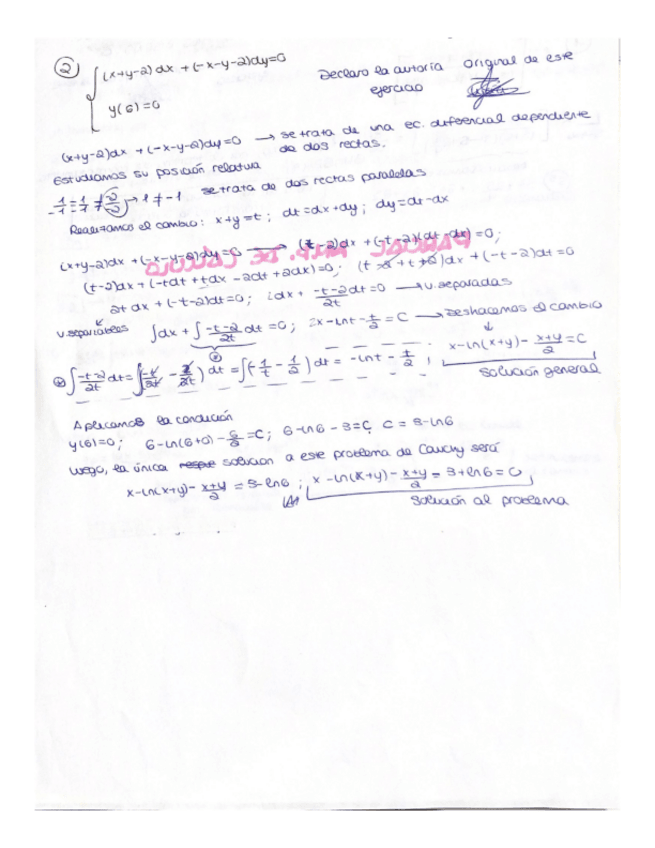 ② { (x+y-2)dx + (-x-y-2)dy=0
y(6)=0
Declaro la autoría original de este
ejercicio
(x+y-2)dx + (-x-y-2)dy=0 → se trata de una ec. diferencial dependiente
de dos rectas.
Estudiamos su posición relativa
1/-1 = 1/-1 ≠ -2/-2 → 1 ≠ -1 se trata de dos rectas paralelas
Realizamos el cambio: x+y=t ; dt=dx+dy; dy=dt-dx
(x+y-2)dx + (-x-y-2)dy=0 → (t-2)dx + (-t-2)(dt-dx) =0;
(t-2)dx + (-tdt + tdx - 2dt + 2dx)=0; (t-2+t+2)dx + (-t-2)dt =0
2t dx + (-t-2)dt=0; dx + (-t-2)/2t dt=0 → v. separadas
v. separables ∫dx + ∫(-t-2)/2t dt =0; x-lnt-t/2 = C → Deshacemos el cambio
x-ln(x+y)- (x+y)/2 = C
∫(-t-2)/2t dt = ∫(-t/2t - 2/2t) dt = ∫(-1/t - 1/2) dt = -lnt - t/2 ;
Solución general
Aplicamos la condición
y(6)=0; 6-ln(6+0) - 6/2 = C; 6-ln6-3=C, C = 3-ln6
Luego, la única solución a este problema de Cauchy será
x-ln(x+y)- (x+y)/2 = 3-ln6 ; x-ln(x+y)- (x+y)/2 - 3+ln6 = 0
Solución al problema